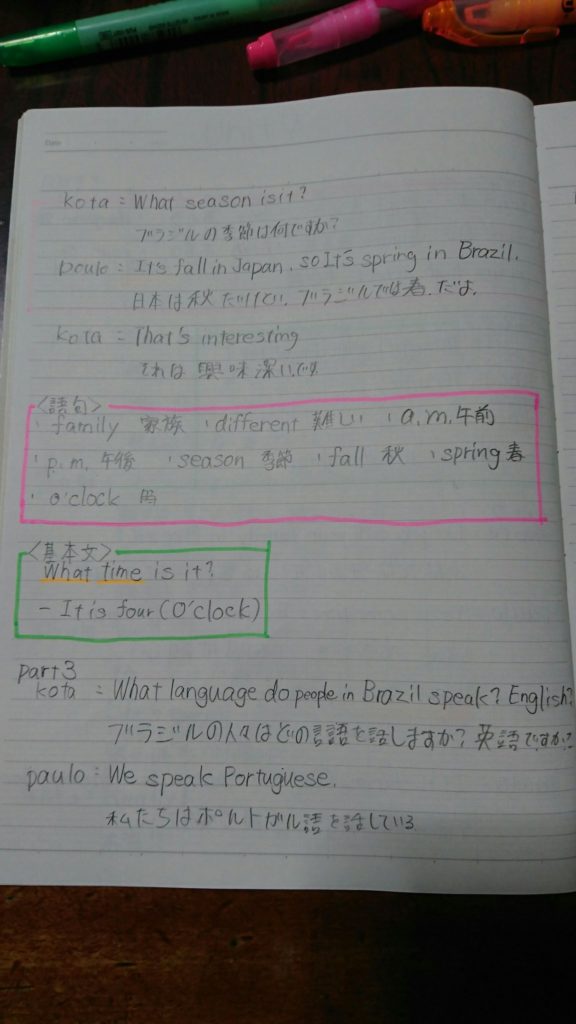 Date
kota : What season is it?
ブラジルの季節は何ですか?
paulo : It's fall in Japan. so It's spring in Brazil.
日本は秋だけどい、ブラジルでは春だよ。
kota : That's interesting
それは興味深いです
〈語句〉
・family 家族 ・different 難しい ・a.m. 午前
・p.m. 午後 ・season 季節 ・fall 秋 ・spring 春
・o'clock 時
〈基本文〉
What time is it?
- It is four (O'clock)
part3
kota : What language do people in Brazil speak? English?
ブラジルの人々はどの言語を話しますか?英語ですか?
paulo : We speak Portuguese.
私たちはポルトガル語を話している